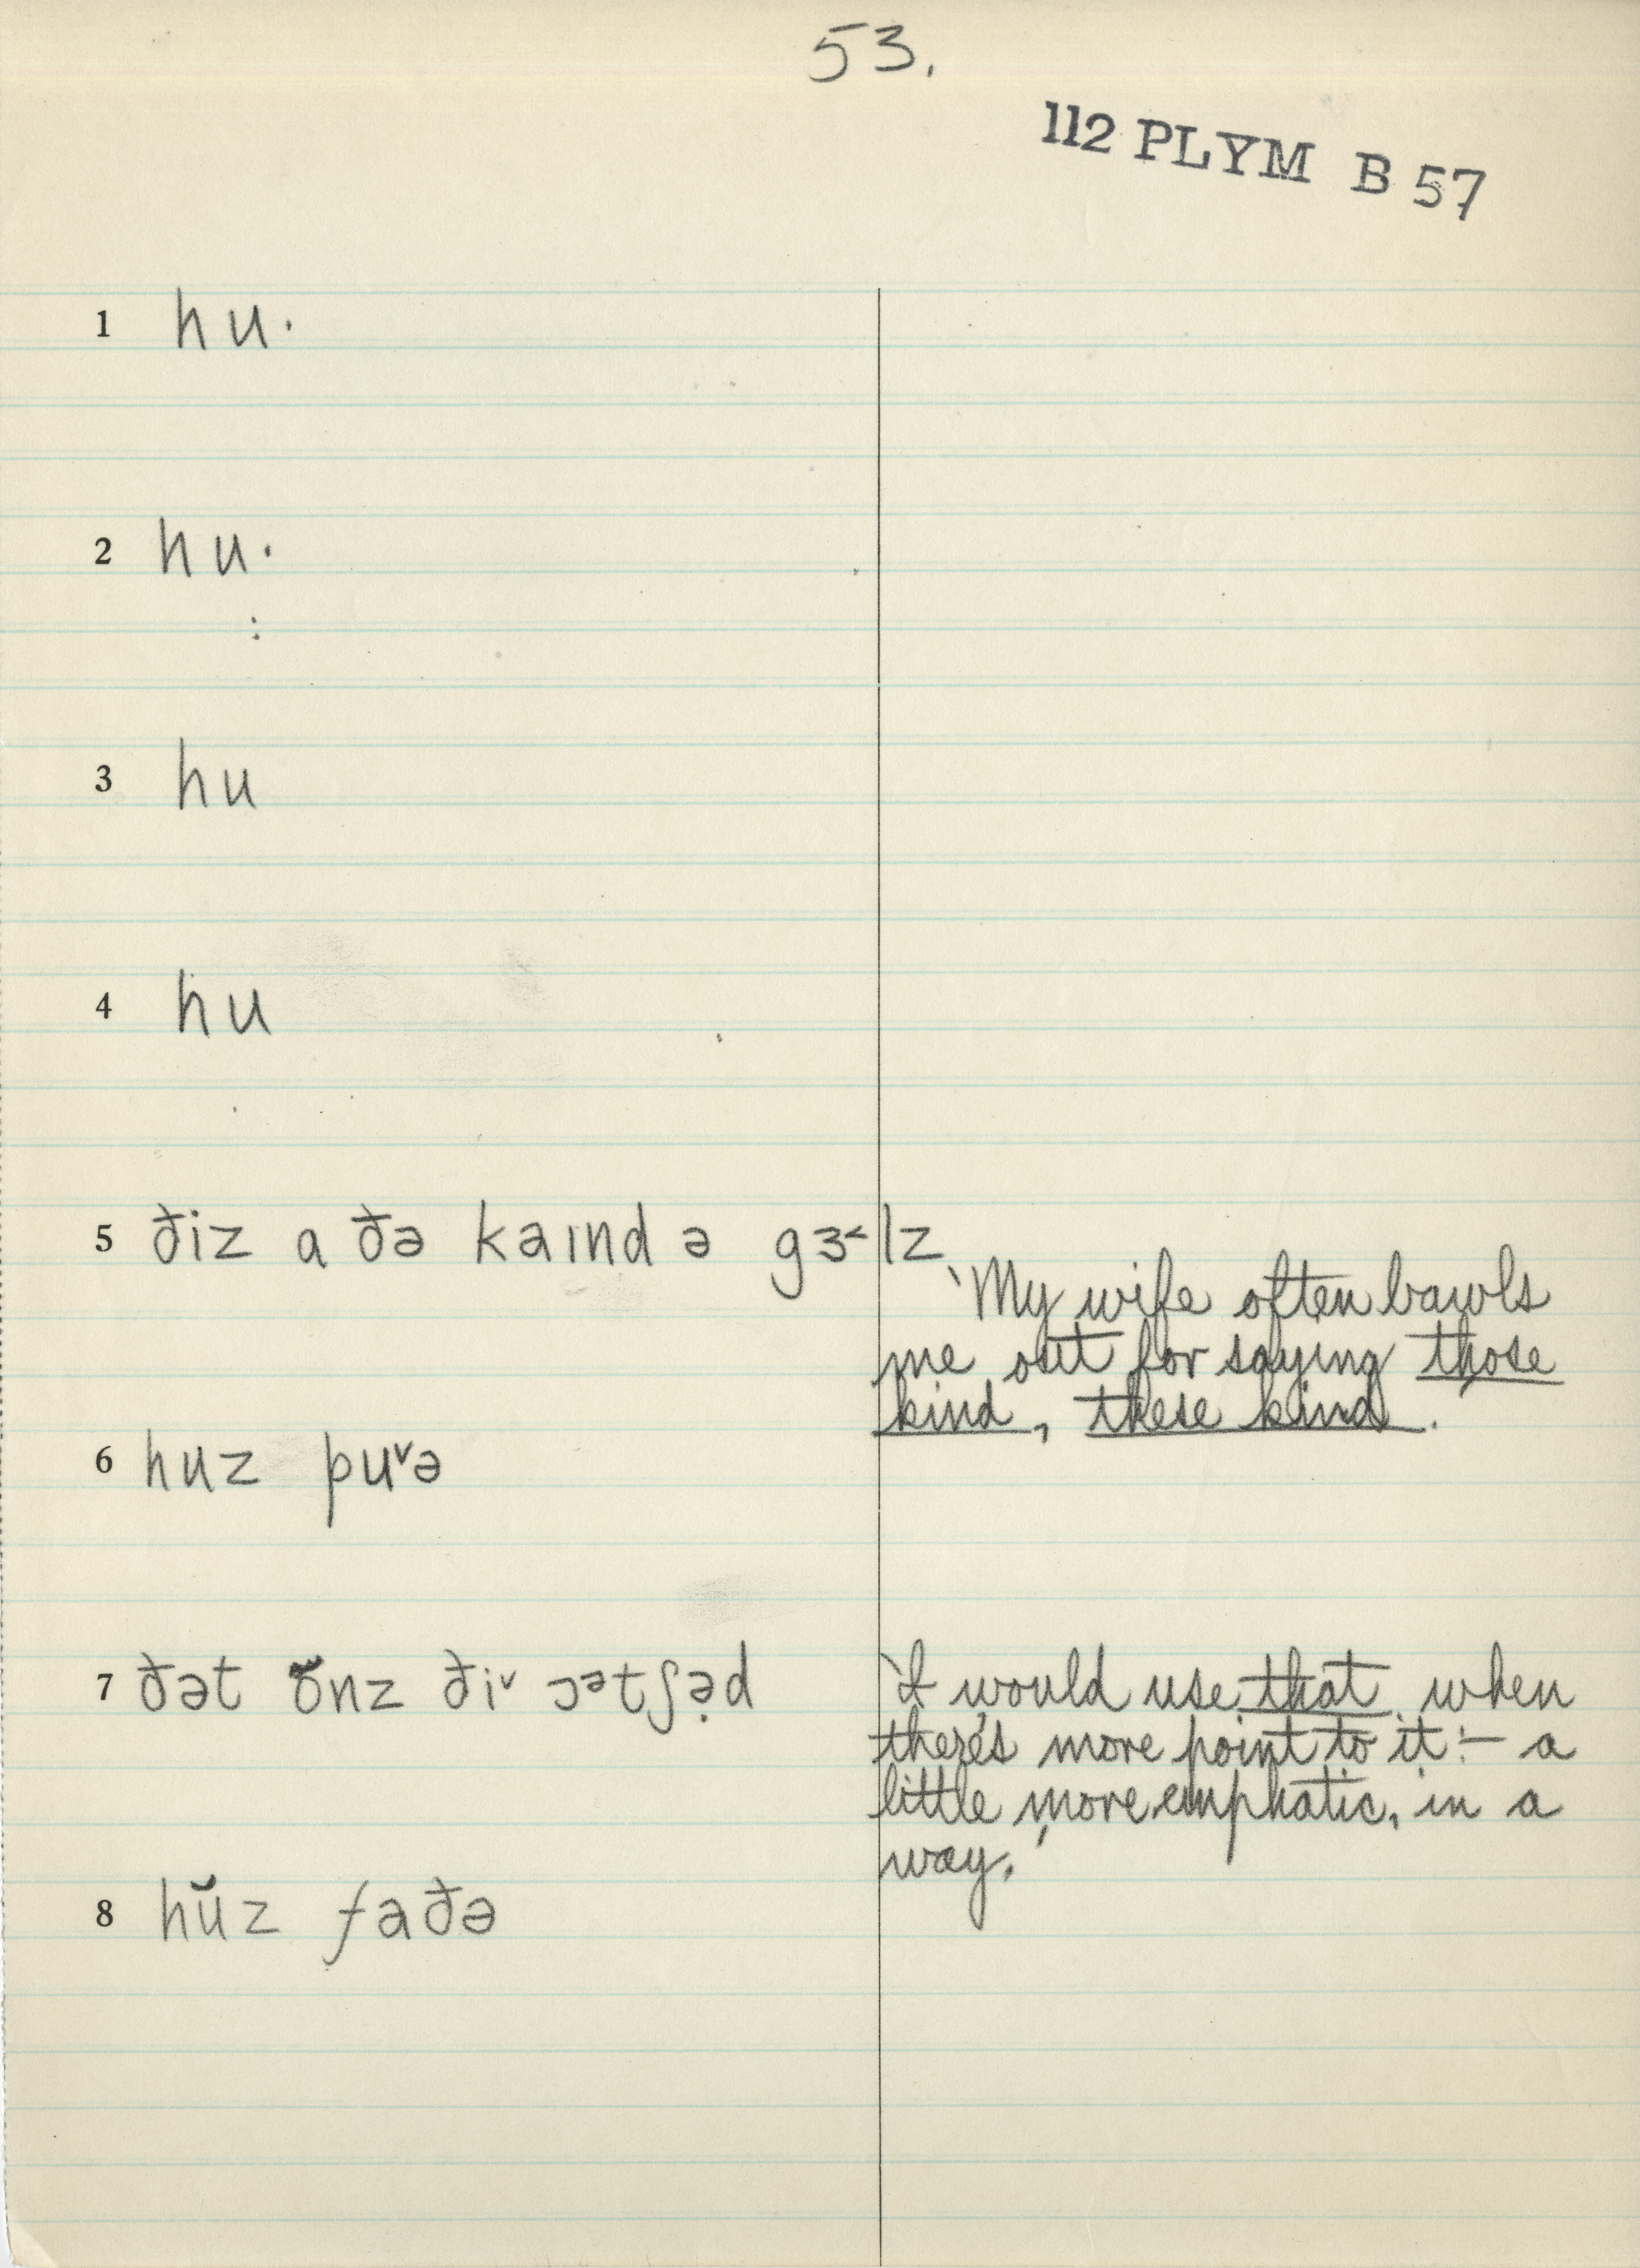 53.
112 PLYM B 57
1 hu·
2 hu·
:
3 hu
4 hu
5 ðiz a ðə kaɪnd ə gɜ˂lz
‵My wife often bawls
me out for saying those
kind, these kind.
6 huz puˇə
7 ðət ŏnz ðiˇ ɔᵊtʃə̣d
‵I would use that when
there's more point to it:– a
little more emphatic, in a
way.′
8 hŭz faðə